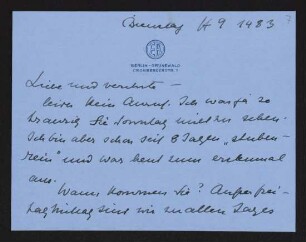 Dienstag 4 9 1983
BERLIN-GRUNEWALD
Liebe und verehrte –
leider kein Anruf. Ich war ja so
traurig Sie Sonntag nicht zu sehen.
Ich bin aber schon seit 8 Tagen „stuben-
rein“ und war heut zum ersten mal
aus.
Wann kommen Sie? Außer Frei-
tag Mittag sind wir zu allen Tages